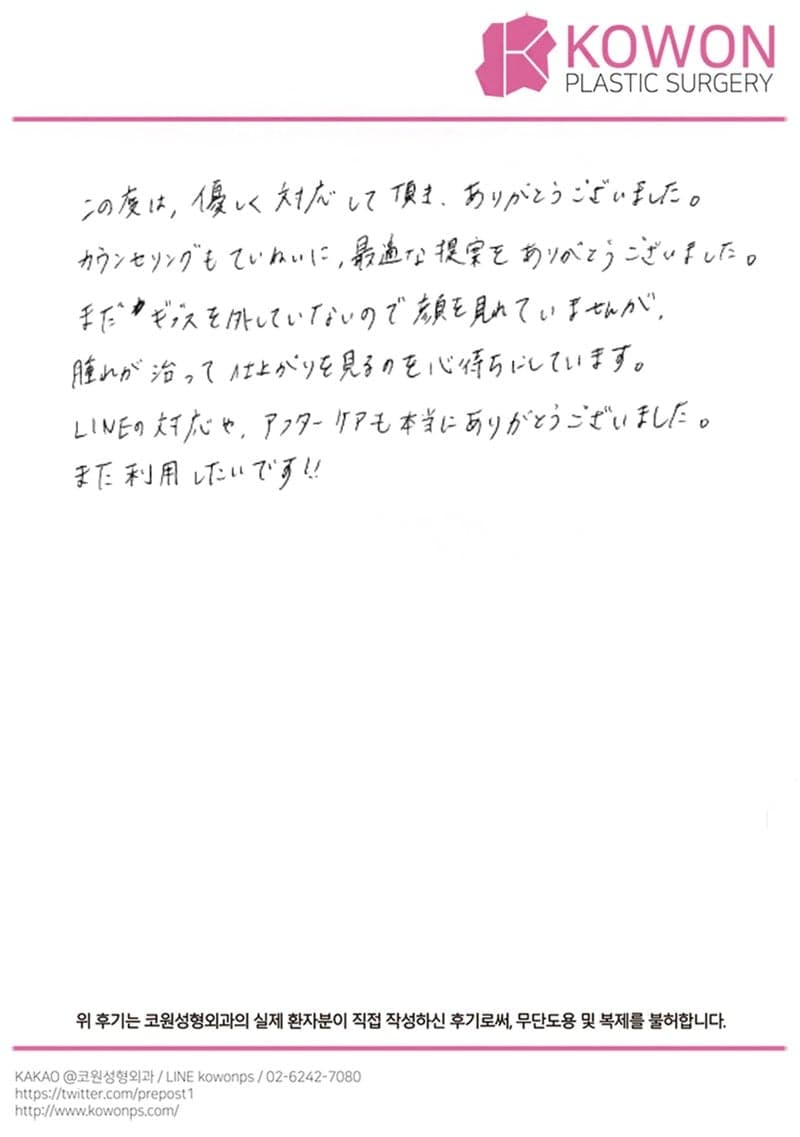 KOWON
PLASTIC SURGERY
この度は, 優しく対応して頂き、ありがとうございました。
カウンセリングもていねいに, 最適な提案をありがとうございました。
まだギプスを外していないので顔を見れていませんが,
腫れが治って仕上がりを見るのを心待ちにしています。
LINEの対応や, アフターケアも本当にありがとうございました。
また利用したいです!!
위 후기는 코원성형외과의 실제 환자분이 직접 작성하신 후기로써, 무단도용 및 복제를 불허합니다.
KAKAO @코원성형외과 / LINE kowonps / 02-6242-7080
https://twitter.com/prepost1
http://www.kowonps.com/